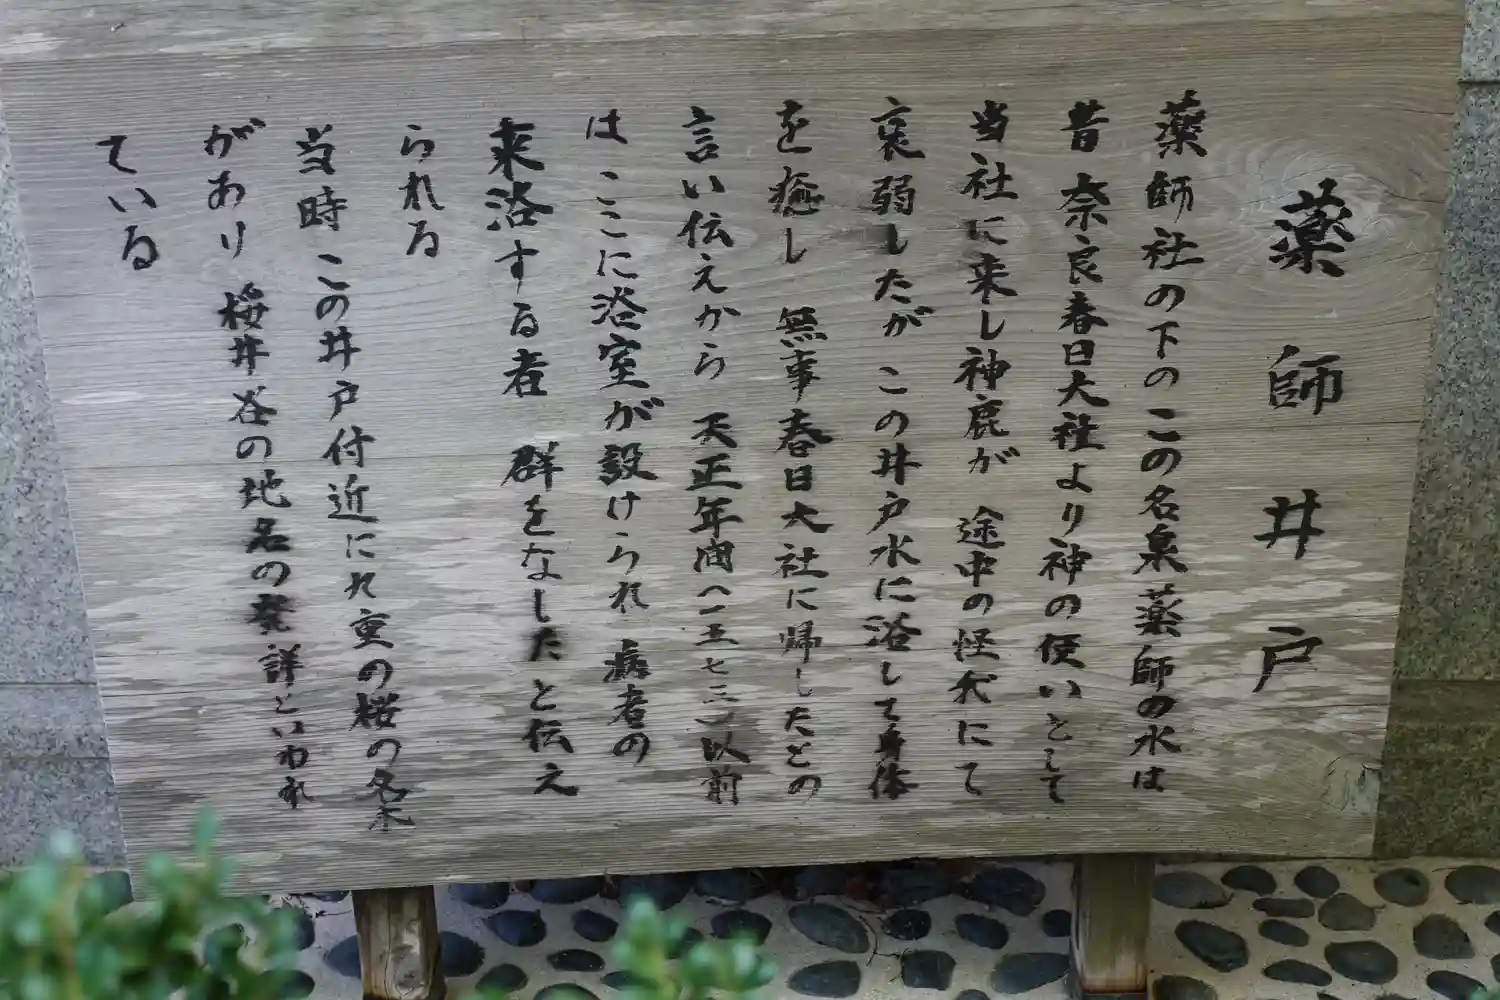 薬師井戸
薬師社の下の この名泉 薬師の水は
昔 奈良春日大社より神の使いとして
当社に来し神鹿が 途中の怪我にて
衰弱したが この井戸水に浴して身体
を癒し 無事春日大社に帰したとの
言い伝えから 天正年間(一五七三)以前
は ここに浴室が設けられ 病者の
来浴する者 群をなしたと伝え
られる
当時 この井戸付近に九重の桜の名木
があり 桜井谷の地名の発詳といわれ
ている